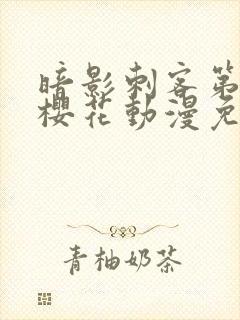 暗影刺客第
櫻花動漫免
青柚奶茶